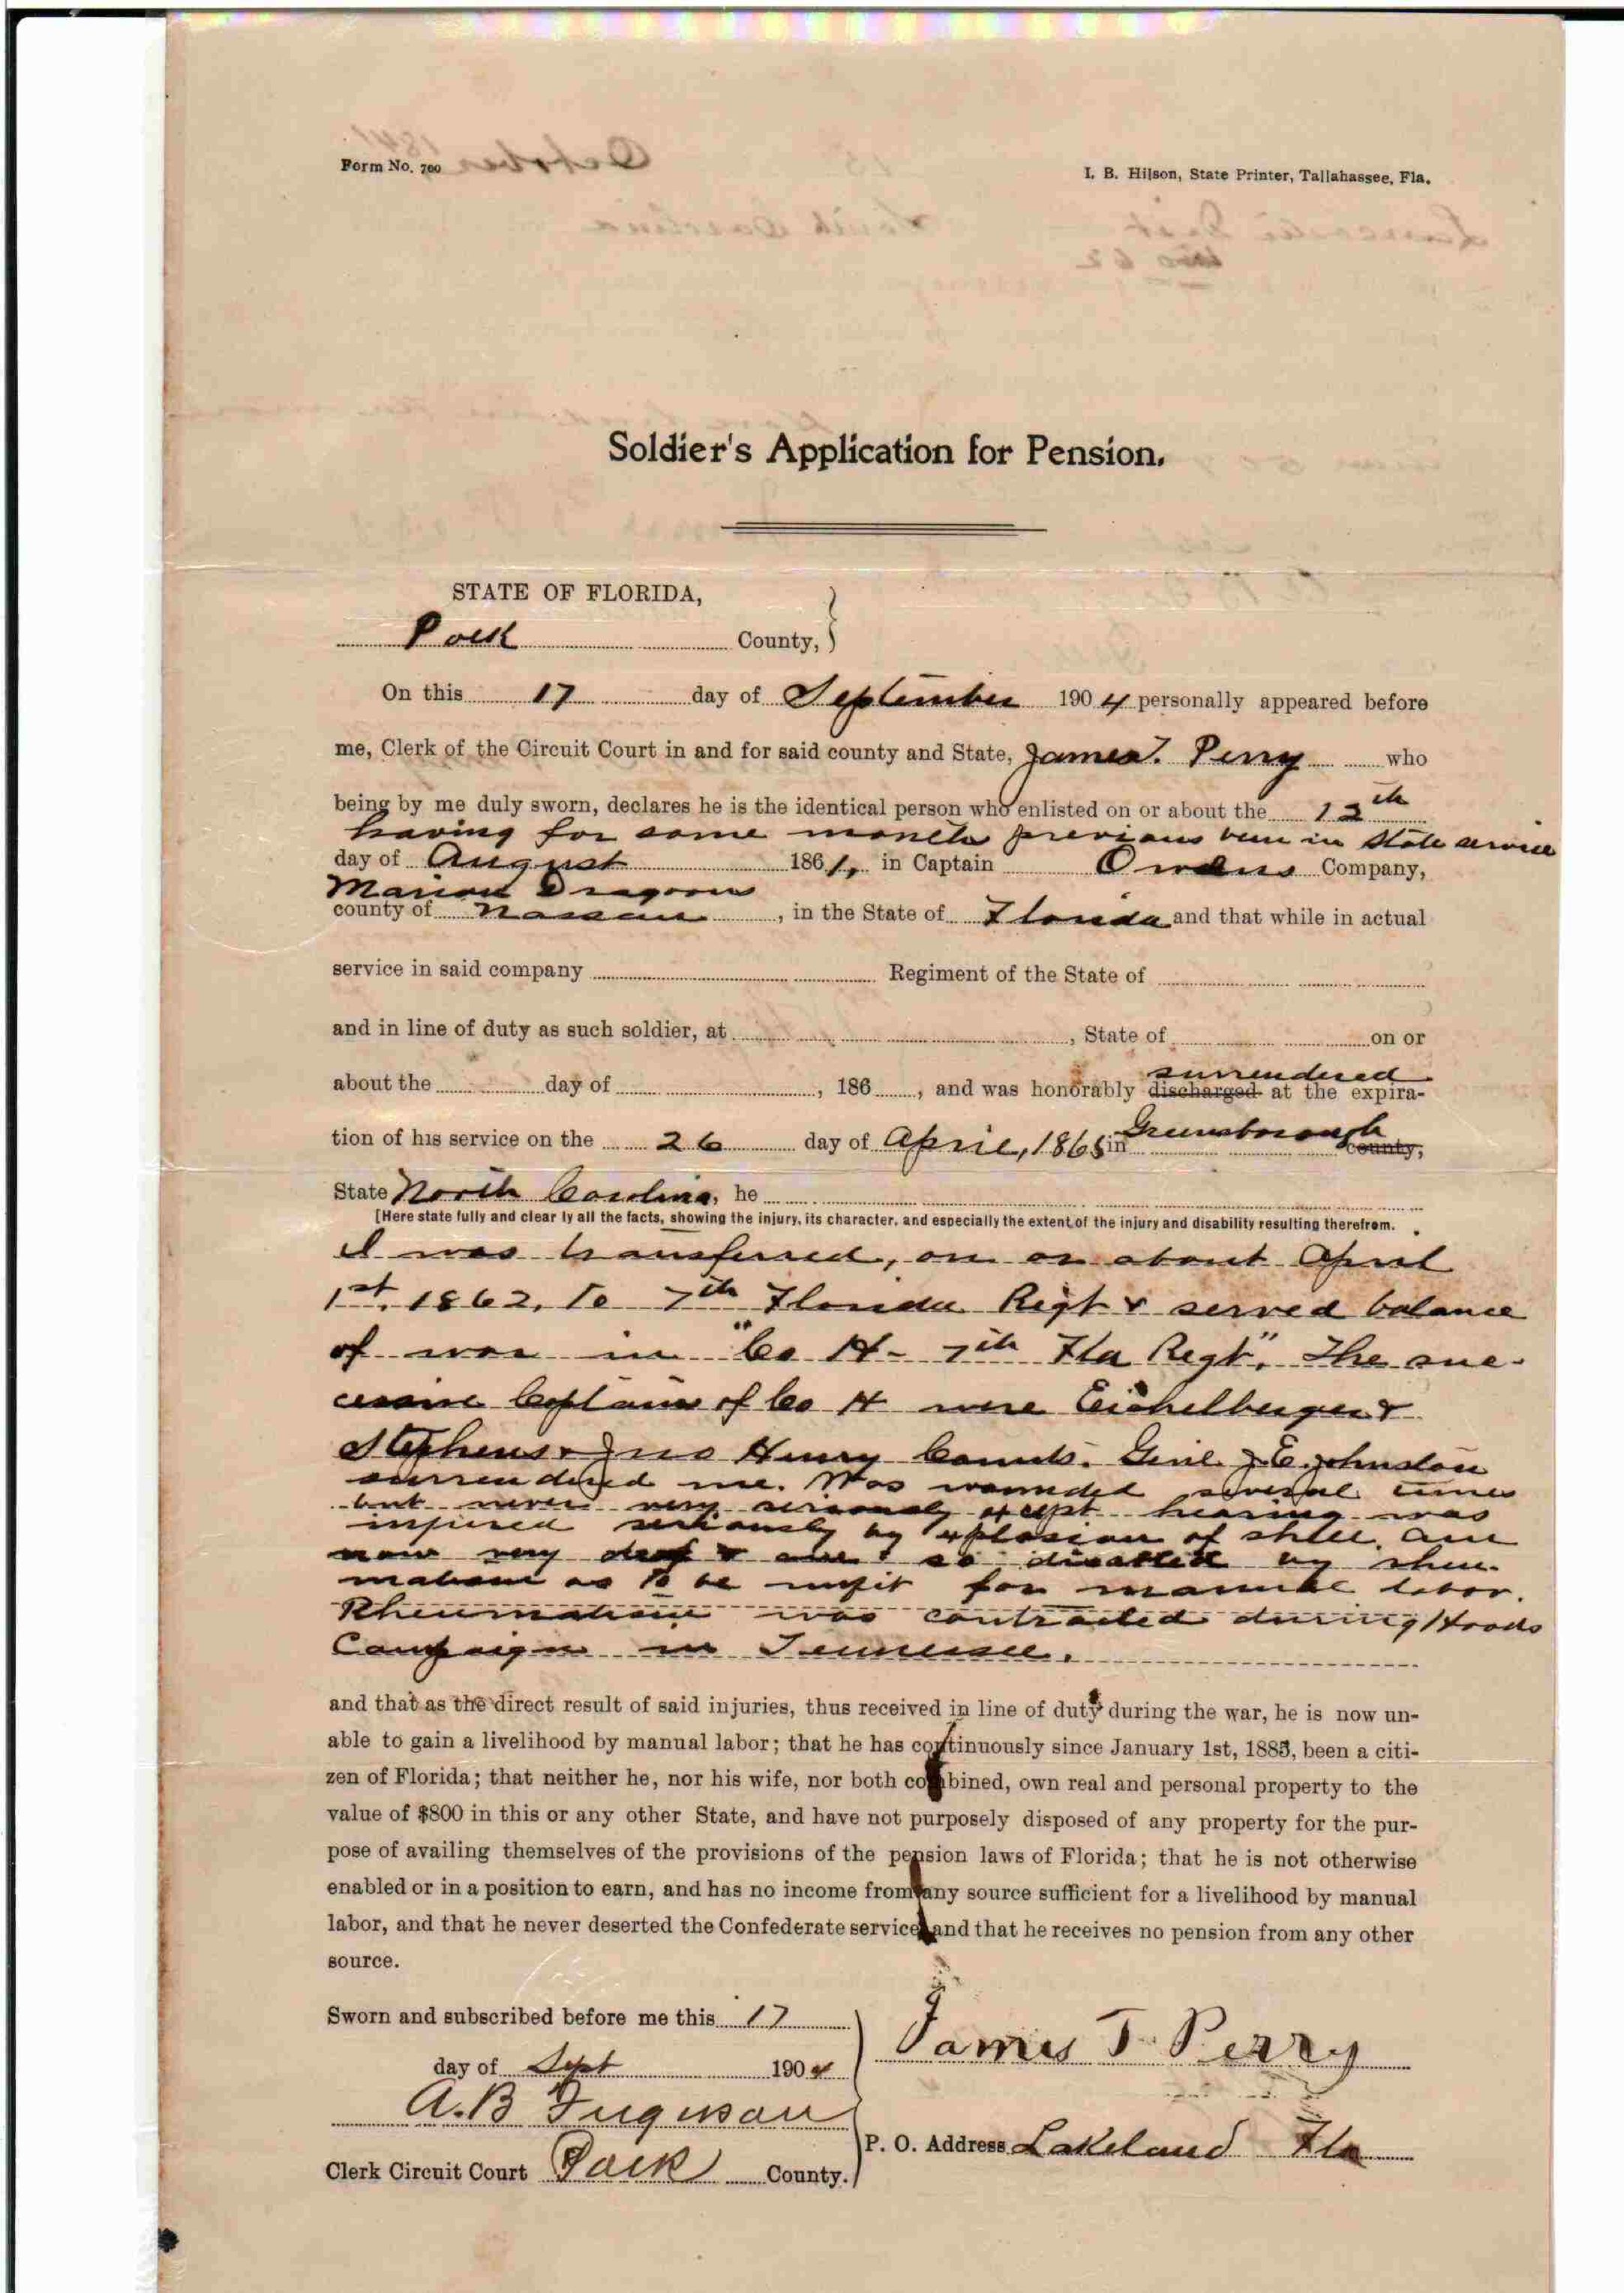 Form No. 700
I. B. Hilson, State Printer, Tallahassee, Fla.
Soldier's Application for Pension.
STATE OF FLORIDA,
Polk County,
On this 17 day of September 1904 personally appeared before
me, Clerk of the Circuit Court in and for said county and State, James T. Perry who
being by me duly sworn, declares he is the identical person who enlisted on or about the 12th
having for some months previous been in State service
day of August 1861, in Captain Owens Company,
Marion Dragoons
county of Nassau, in the State of Florida and that while in actual
service in said company Regiment of the State of
and in line of duty as such soldier, at , State of on or
about the day of , 186 , and was honorably discharged surrendered at the expira-
tion of his service on the 26 day of April, 1865 in Greensborough county,
State North Carolina, he
[Here state fully and clearly all the facts, showing the injury, its character, and especially the extent of the injury and disability resulting therefrom.
I was transferred, on or about April
1st, 1862, to 7th Florida Regt & served balance
of war in "Co H- 7th Fla Regt". The suc-
cessive Captains of Co H were Eichelberger &
Stephens & Jno Henry Counts. Genl J.E. Johnston
surrendered me. Was wounded several times
but never very seriously except hearing was
injured seriously by explosion of shell. Am
now very deaf & am so disabled by rheu-
matism as to be unfit for manual labor.
Rheumatism was contracted during Hoods
Campaign in Tennessee.
and that as the direct result of said injuries, thus received in line of duty during the war, he is now un-
able to gain a livelihood by manual labor; that he has continuously since January 1st, 1885, been a citi-
zen of Florida; that neither he, nor his wife, nor both combined, own real and personal property to the
value of $800 in this or any other State, and have not purposely disposed of any property for the pur-
pose of availing themselves of the provisions of the pension laws of Florida; that he is not otherwise
enabled or in a position to earn, and has no income from any source sufficient for a livelihood by manual
labor, and that he never deserted the Confederate service and that he receives no pension from any other
source.
Sworn and subscribed before me this 17
day of Sept 1904
James T Perry
A.B Ferguson
P. O. Address Lakeland Fla
Clerk Circuit Court Polk County.